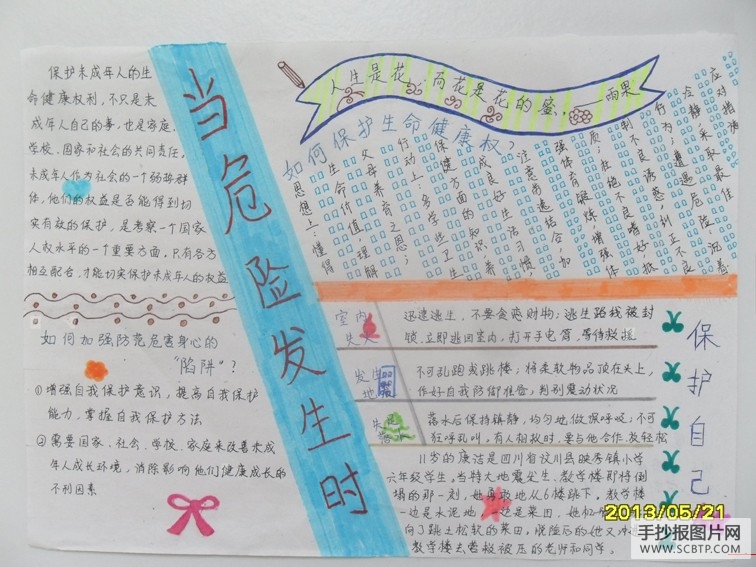 保护未成年人的生
命健康权利,不只是未
成年人自己的事,也是家庭、
学校、国家和社会的共同责任,
未成年人作为社会的一个弱势群
体,他们的权益是否能得到切
实有效的保护,是考察一个国家
人权水平的一个重要方面。只有各方
相互配合,才能切实保护未成年人的权益
如何加强防范危害身心的
"陷阱"?
①增强自我保护意识,提高自我保护
能力,掌握自我保护方法
②需要国家、社会、学校、家庭来改善未成
年人成长环境,消除影响他们健康成长的
不利因素
当危险发生时
人生是花,而花是花的蜜。——雨果
如何保护生命健康权?
思想上:懂得
生命价值,理解
父母养育之恩;
行动上:多学些卫生
保健方面的知识,养
成良好生活习惯;
注意劳逸结合,加
强体育锻炼,增强体
质;杜绝不良嗜好,抵
制不良诱惑
行为;遇
冷静,采取
应对措
室内
失火
迅速逃生,不要贪恋财物;逃生路线被封
锁,立即逃回室内,打开手电筒,等待救援
发生
地震
不可乱跑或跳楼;将柔软物品顶在头上,
作好自我防御准备;判别震动状况
失足
落水
落水后保持镇静,均匀地做深呼吸;不可
狂呼乱叫,有人相救时,要与他合作,放轻松
11岁的康洁是四川省汶川县映秀镇小学
六年级学生,当特大地震发生、教学楼即将倒
塌的那一刻,她勇敢地从6楼跳下。教学楼
一边是水泥地,一边是菜田。她
向了跳土松软的菜田,脱险后的她又
教学楼去营救被压的老师和同学。
保护自己
2013/05/21
手抄报图片网
WWW.SCBTP.COM